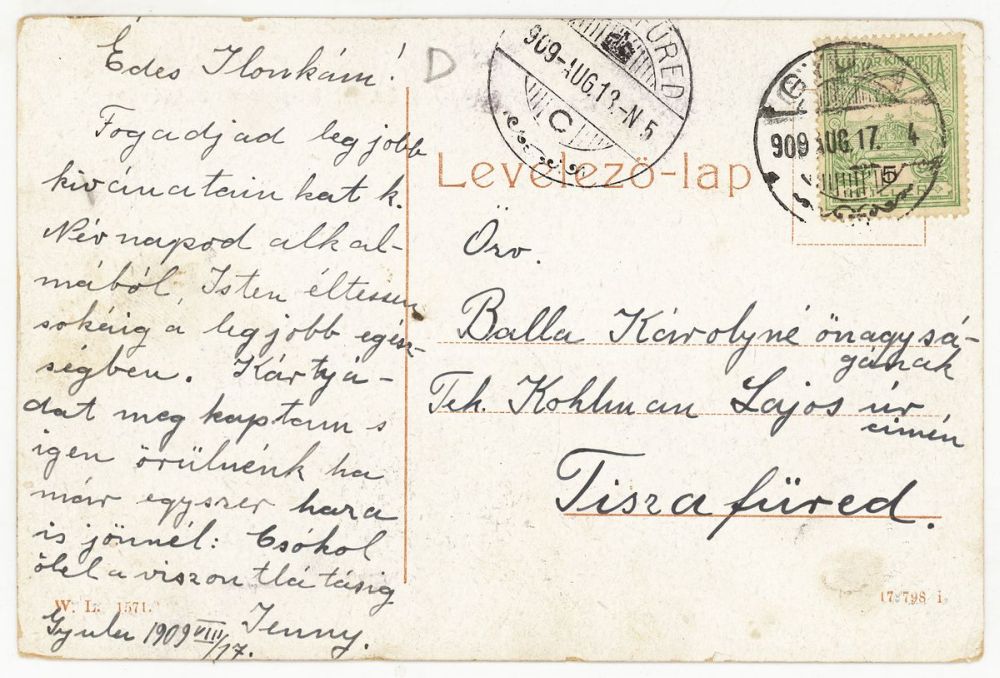 Édes Ilonkám!
Fogadjad legjobb
kivánataimkat k.
Névnapod alkal-
mából, Isten éltessen
sokáig a legjobb egész-
ségben. Kártyá-
dat megkaptam s
igen örülnénk ha
már egyszer haza
is jönnél: Csókol
ölel a viszontlátásig
Jenny.
Gyula 1909 VIII/17.
W. L. 1571.
D
FÜRED
909-AUG.18.-N5
C
GYULA
909 AUG.17. 4
MAGYAR KIR. POSTA
5
Levelező-lap
Örv.
Balla Károlyné önagysá-
gának
Tek. Kohlman Lajos úr
címén
Tiszafüred.
17798 i.